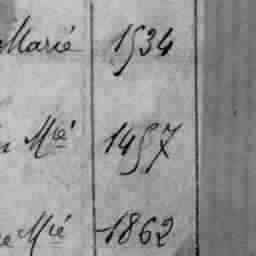 Marié 1534
Mié 1457
Mié 1862